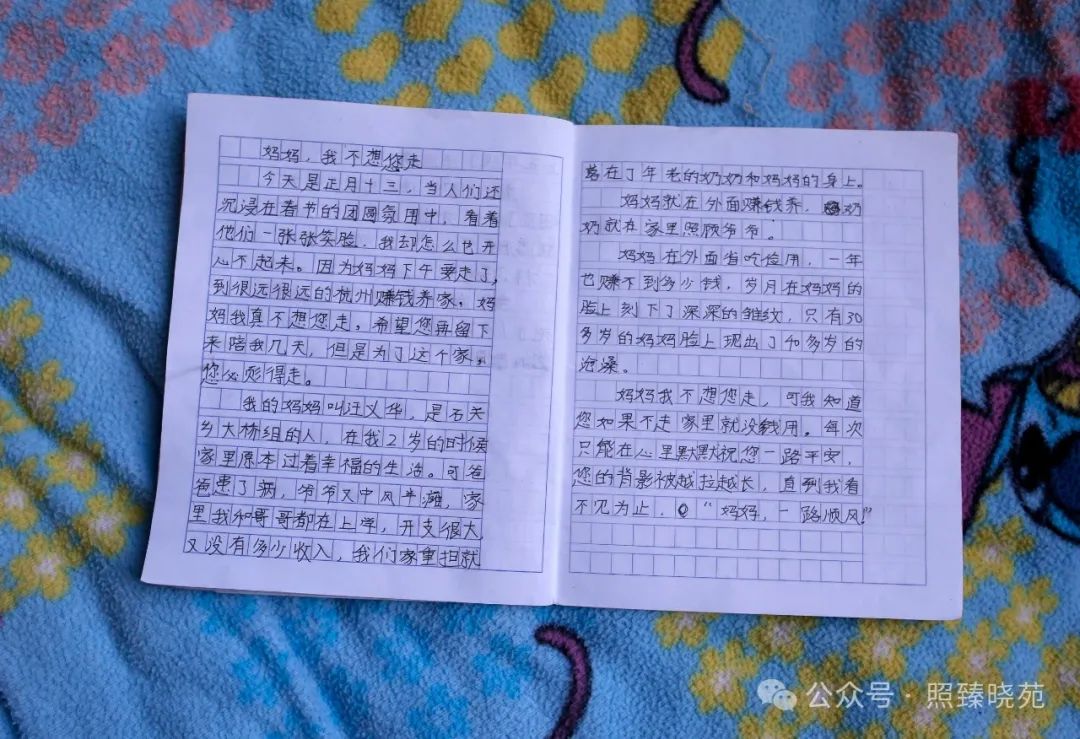 妈妈，我不想您走
今天是正月十三，当人们还
沉浸在春节的团圆氛围中，看着
他们一张张笑脸，我却怎么也开
心不起来。因为妈妈下午要走了，
到很远很远的杭州赚钱养家。妈
妈我真不想您走。希望您再留下
来陪我几天，但是为了这个家，
您必须得走。
我的妈妈叫汪义华，是石关
乡大林组的人，在我2岁的时候
家里原本过着幸福的生活。可爸
爸患了病，爷爷又中风半瘫，家
里我和哥哥都在上学，开支很大，
又没有多少收入，我们家重担就
落在了年老的奶奶和妈妈的身上。
妈妈就在外面赚钱养，奶
奶就在家里照顾爷爷。
妈妈在外面省吃俭用，一年
也赚不到多少钱，岁月在妈妈的
脸上刻下了深深的皱纹，只有30
多岁的妈妈脸上现出了40多岁的
沧桑。
妈妈我不想您走，可我知道
您如果不走家里就没钱用。每次
只能在心里默默祝您一路平安，
您的背影被越拉越长，直到我看
不见为止，“妈妈，一路顺风！”
公众号·照臻晓苑